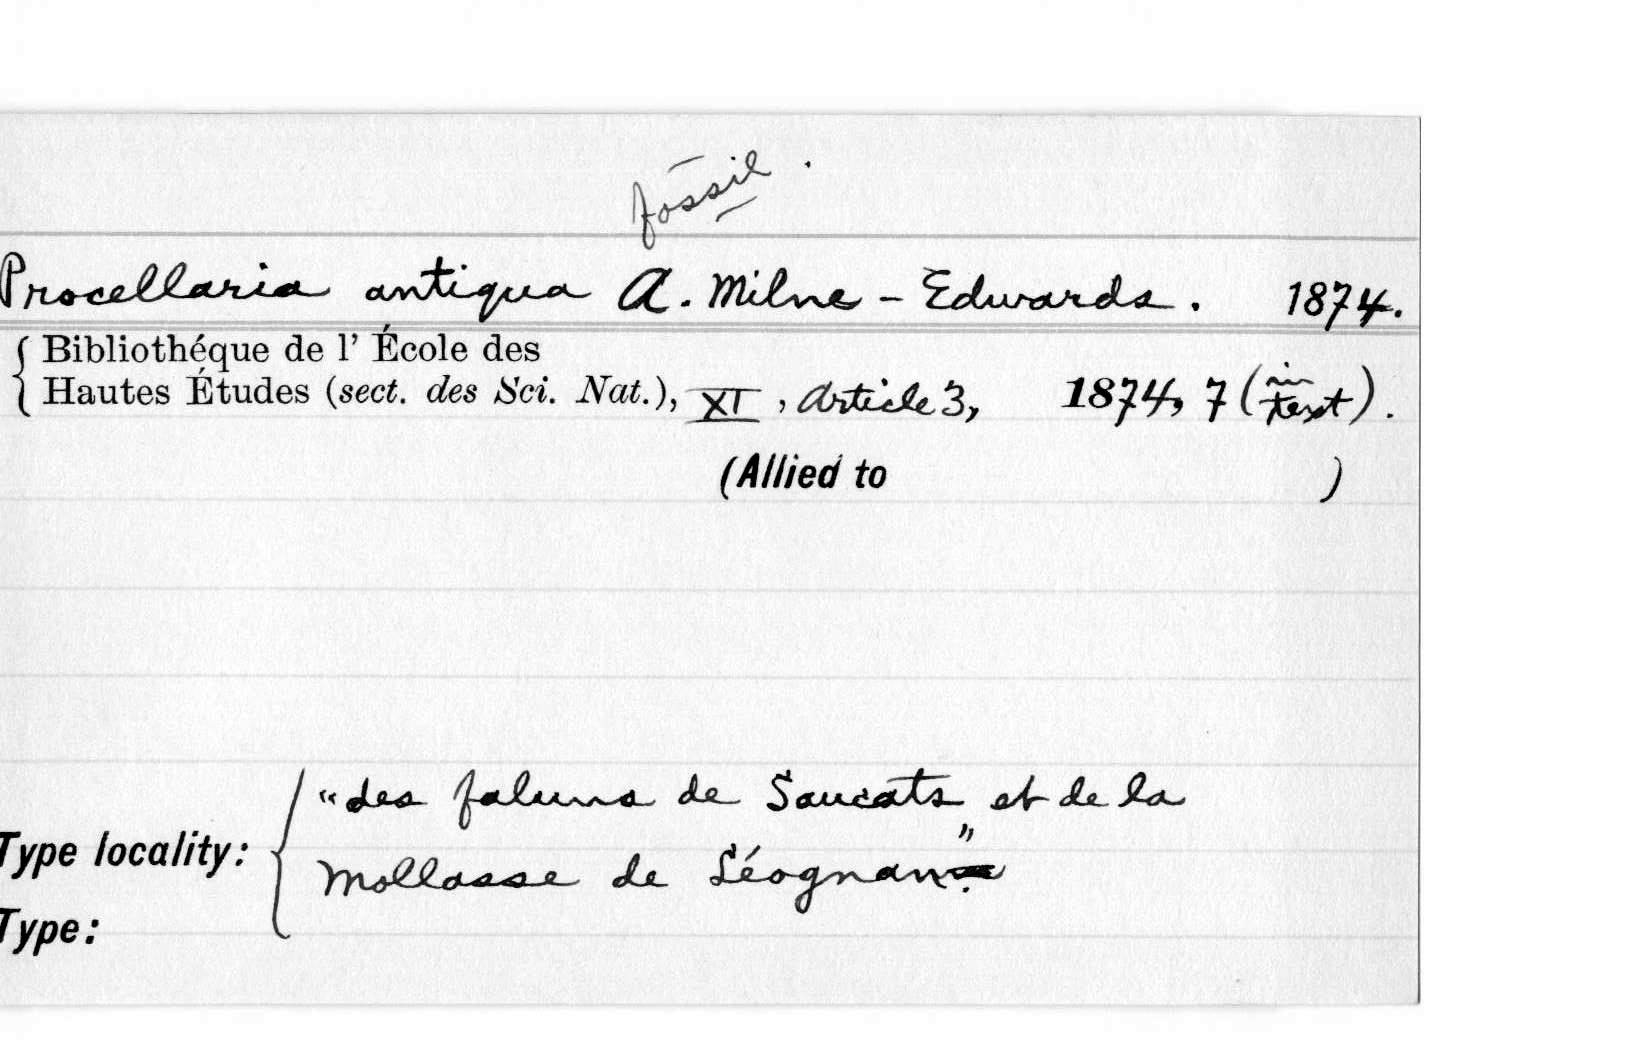 fossil.
Procellaria antiqua A. Milne-Edwards. 1874.
Bibliothéque de l' École des
Hautes Études (sect. des Sci. Nat.), XI, Article 3, 1874, 7 (in text).
(Allied to )
"des faluns de Saucats et de la
Type locality:
Mollasse de Léognan".
Type: